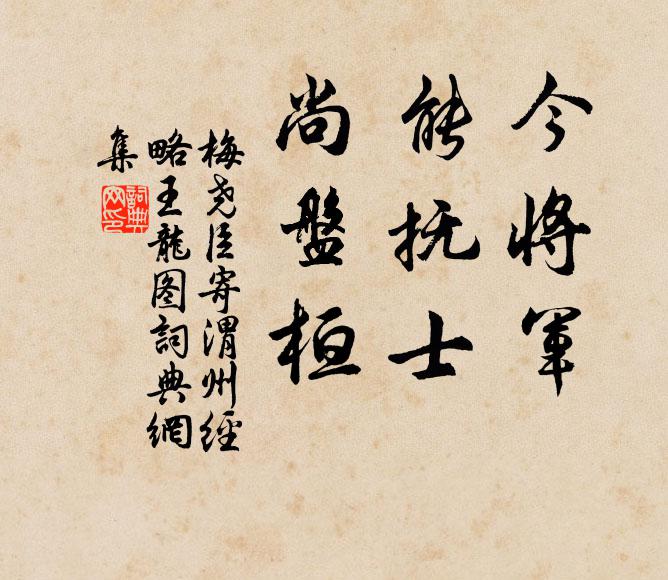 今将軍
能抚士
尚盤桓
梅尧臣寄渭州經
略王龍图詞典網
集
詞典
网印